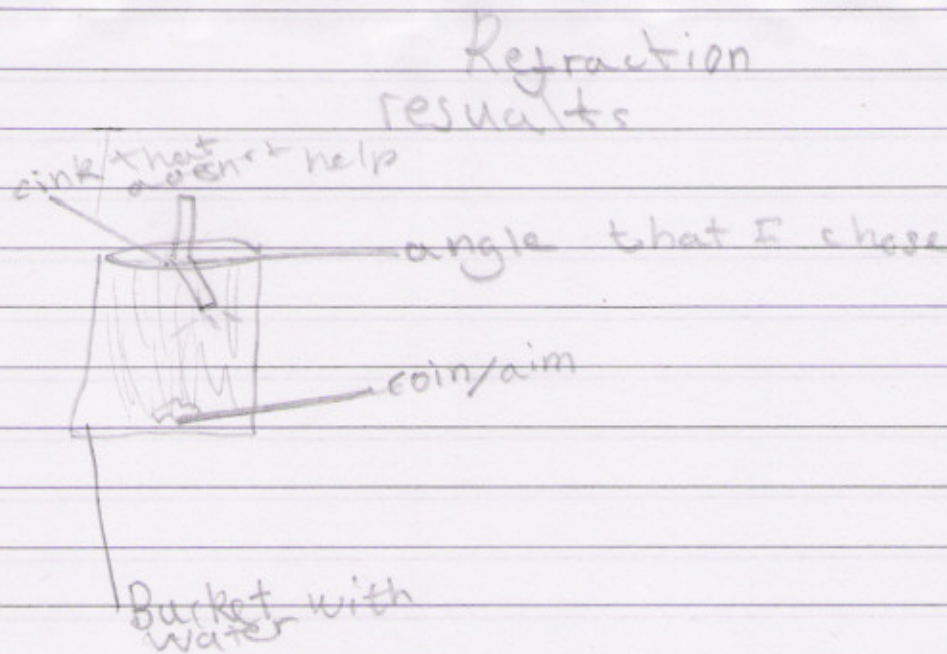 Refraction
resualts
cink that
doesn't help
angle that I chose
coin/aim
Bucket with
water